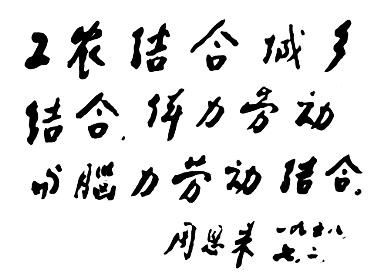 工农结合城乡
结合，体力劳动
与脑力劳动结合。
周恩来 一九五八、
七、二、